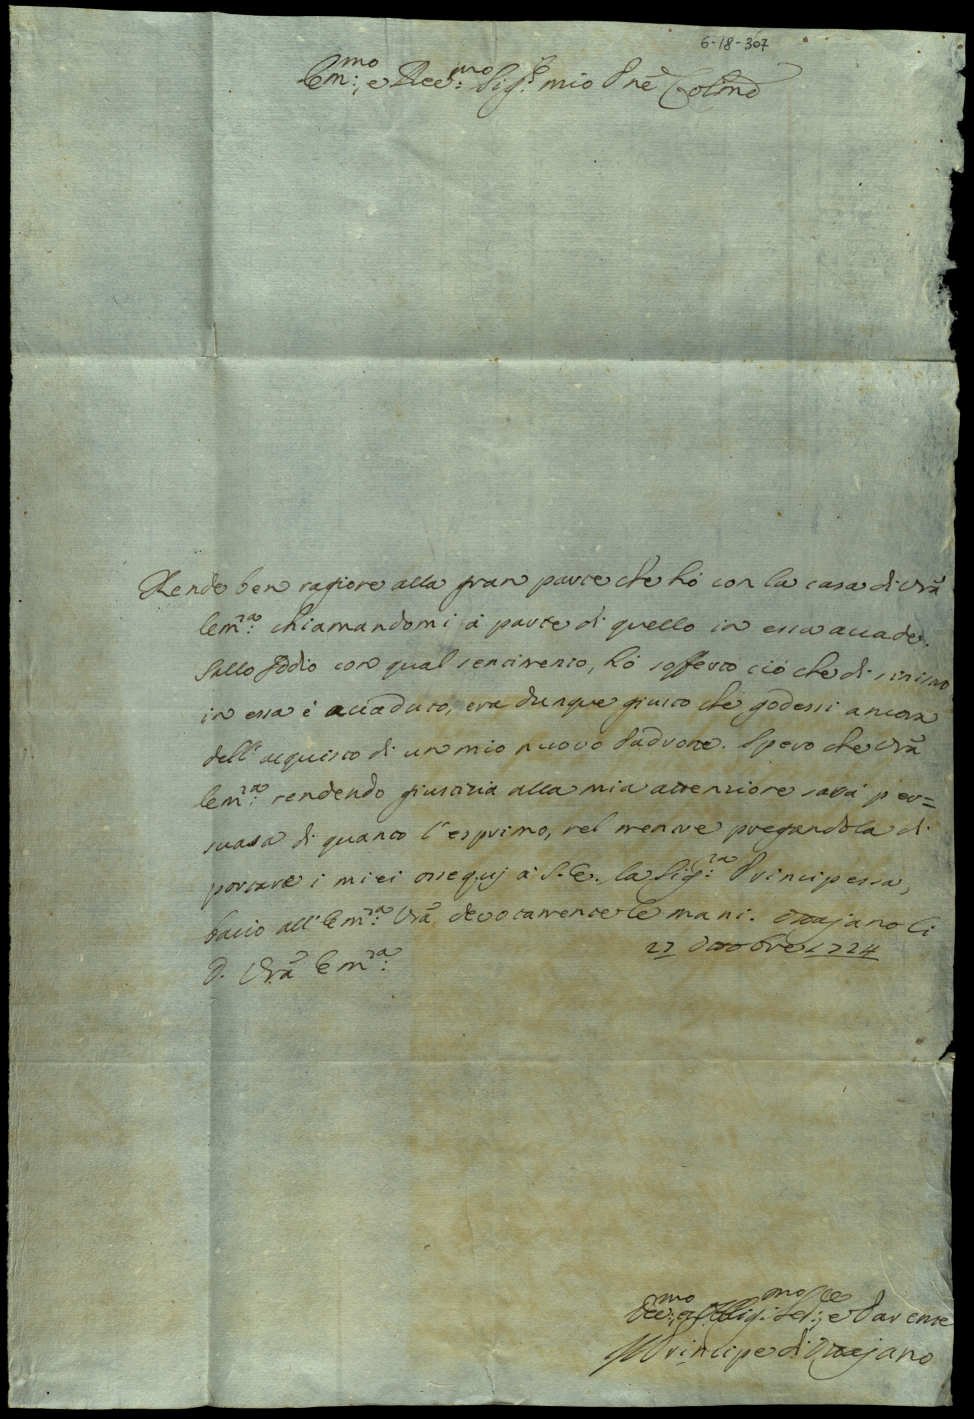 6-18-307
Em:mo, e Reu:mo Sig:r mio Prné Colmo
Rende ben ragione alla gran parte che hó con la casa di Vrã
Em:za chiamandomi á parte di quello in essa accade.
Sallo Iddio con qual sentimento, hó sofferto ciò che di sinistro
in essa é accaduto, era dunque giusto che godessi ancora
dell' acquisto di un mio nuovo Padrone. Spero che Vrã
Em:za rendendo giustizia alla mia attenzione sará per=
suasa di quanto l'esprimo, nel mentre pregandola di
portare i miei ossequj á S.E. la Sig:ra Principessa,
bacio all' Em:za Vrã devotamente le mani. Ottajano li
27 Ottobre 1724
D. Vrã Em:za
Deu:mo, et Oblig:mo Ser:re, e Parente
Il Principe di Ottajano